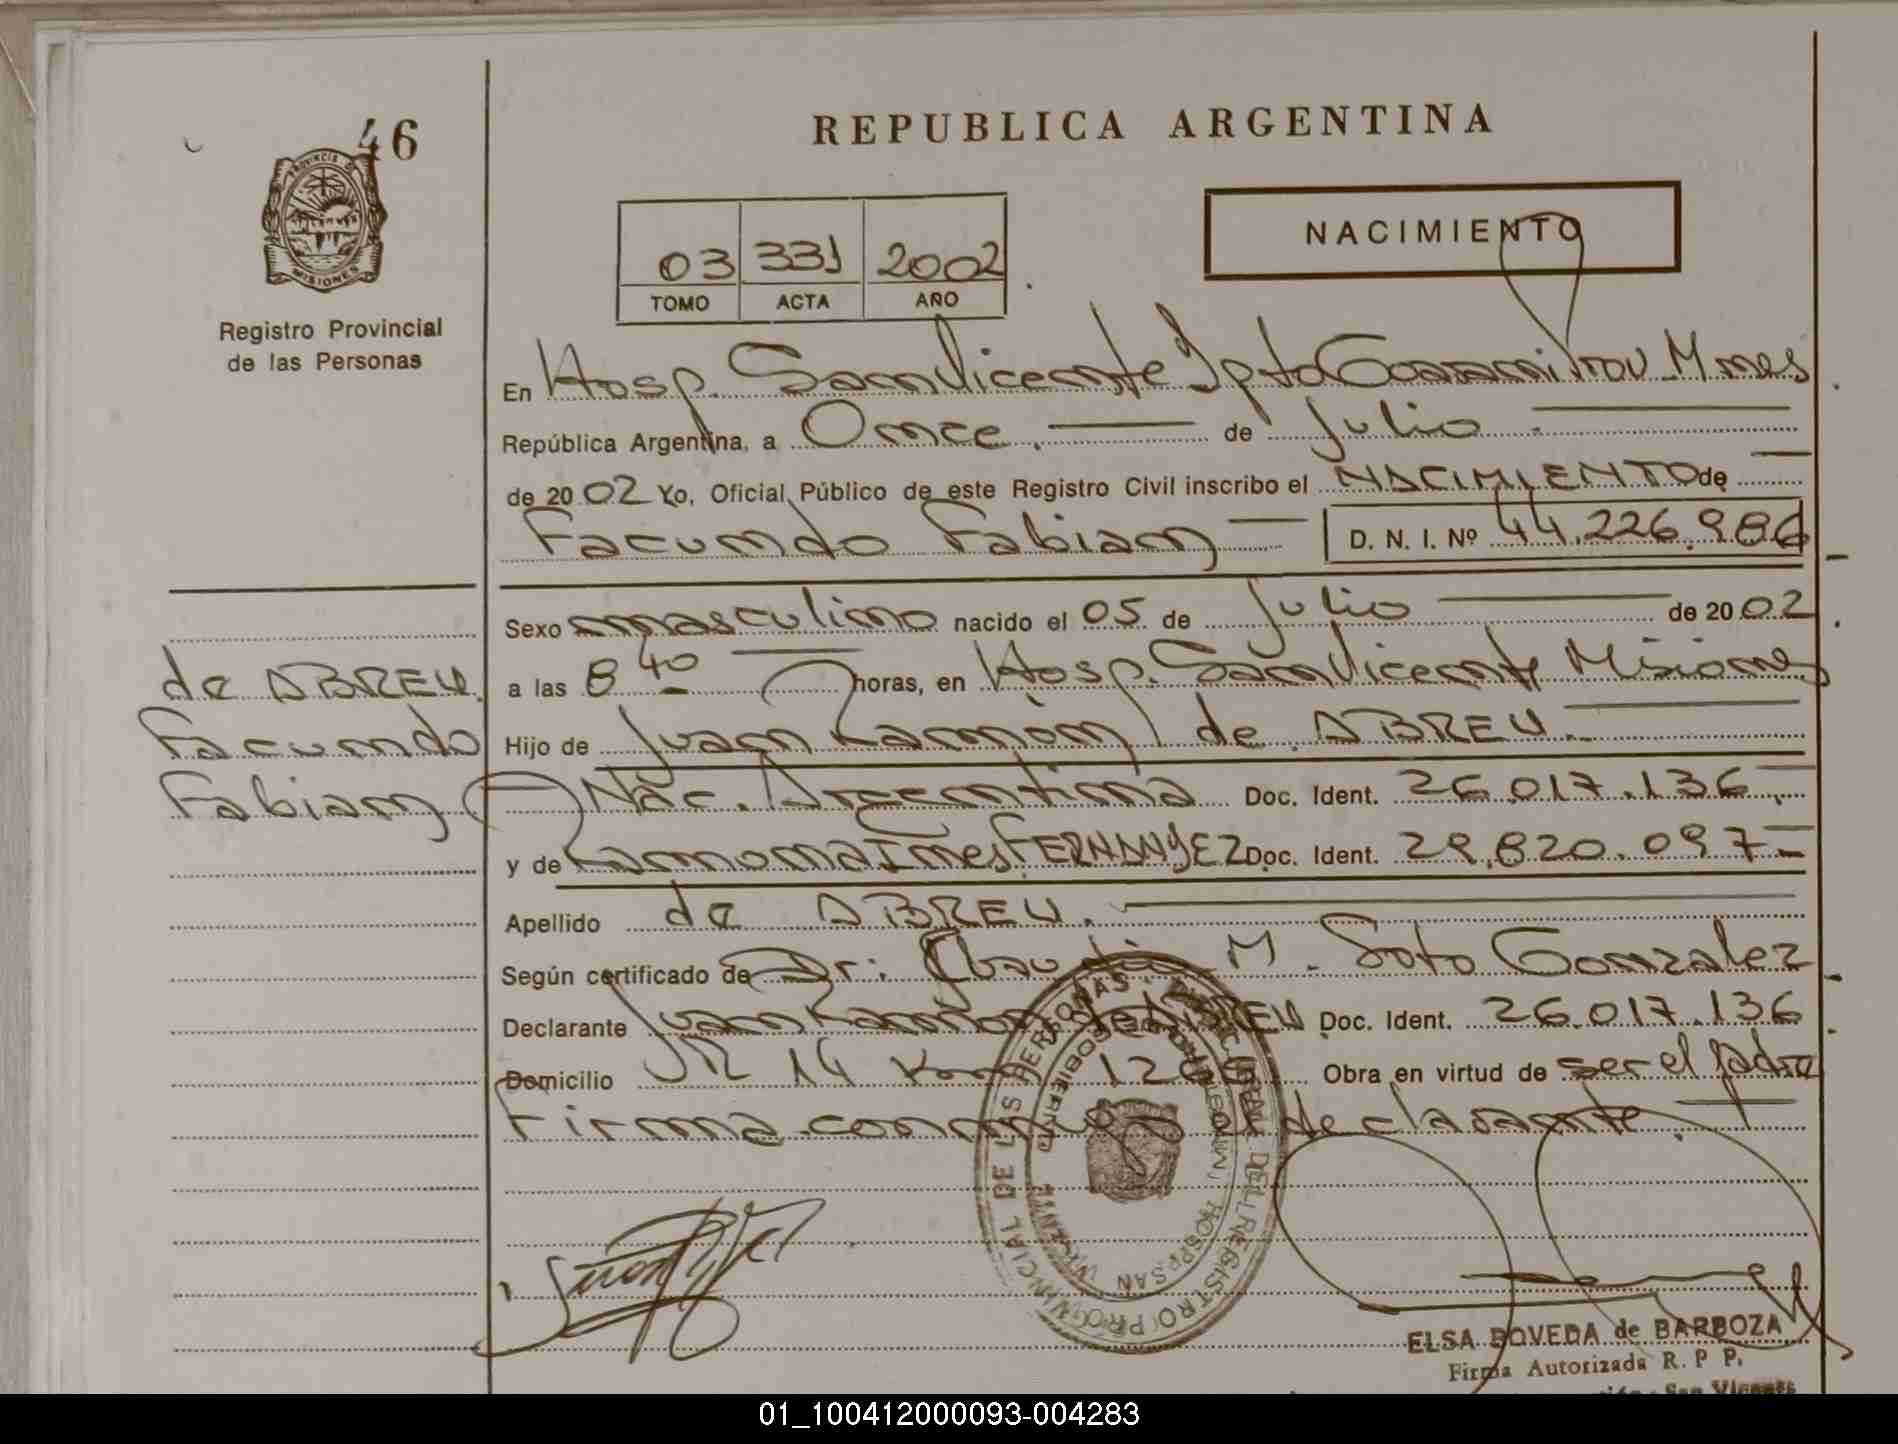 46
PROVINCIA DE
MISIONES
Registro Provincial
de las Personas
REPUBLICA ARGENTINA
03 331 2002
TOMO ACTA AÑO
NACIMIENTO
En Hosp. San Vicente Dpto Guarani Prov. Mnes
República Argentina, a Once. de Julio
de 2002 Yo, Oficial Público de este Registro Civil inscribo el NACIMIENTO de
Facundo Fabian D. N. I. Nº 44.226.986
Sexo masculino nacido el 05 de Julio de 2002
a las 8 40 horas, en Hosp. San Vicente Misiones
Hijo de Juan Ramón de ABREU.
Nac. Argentina Doc. Ident. 26.017.136
y de Ramona Ines FERNANDEZ Doc. Ident. 29.820.097
Apellido de ABREU.
Según certificado de Dr: Claudia M. Soto Gonzalez
Declarante Juan Ramón de ABREU Doc. Ident. 26.017.136
Domicilio 14 Km 1266 Obra en virtud de ser el padre
Firma conmigo el declarante.
de ABREU.
Facundo
Fabian
ELSA BOVEDA de BARBOZA
Firma Autorizada R. P P.
San Vicente
01_100412000093-004283